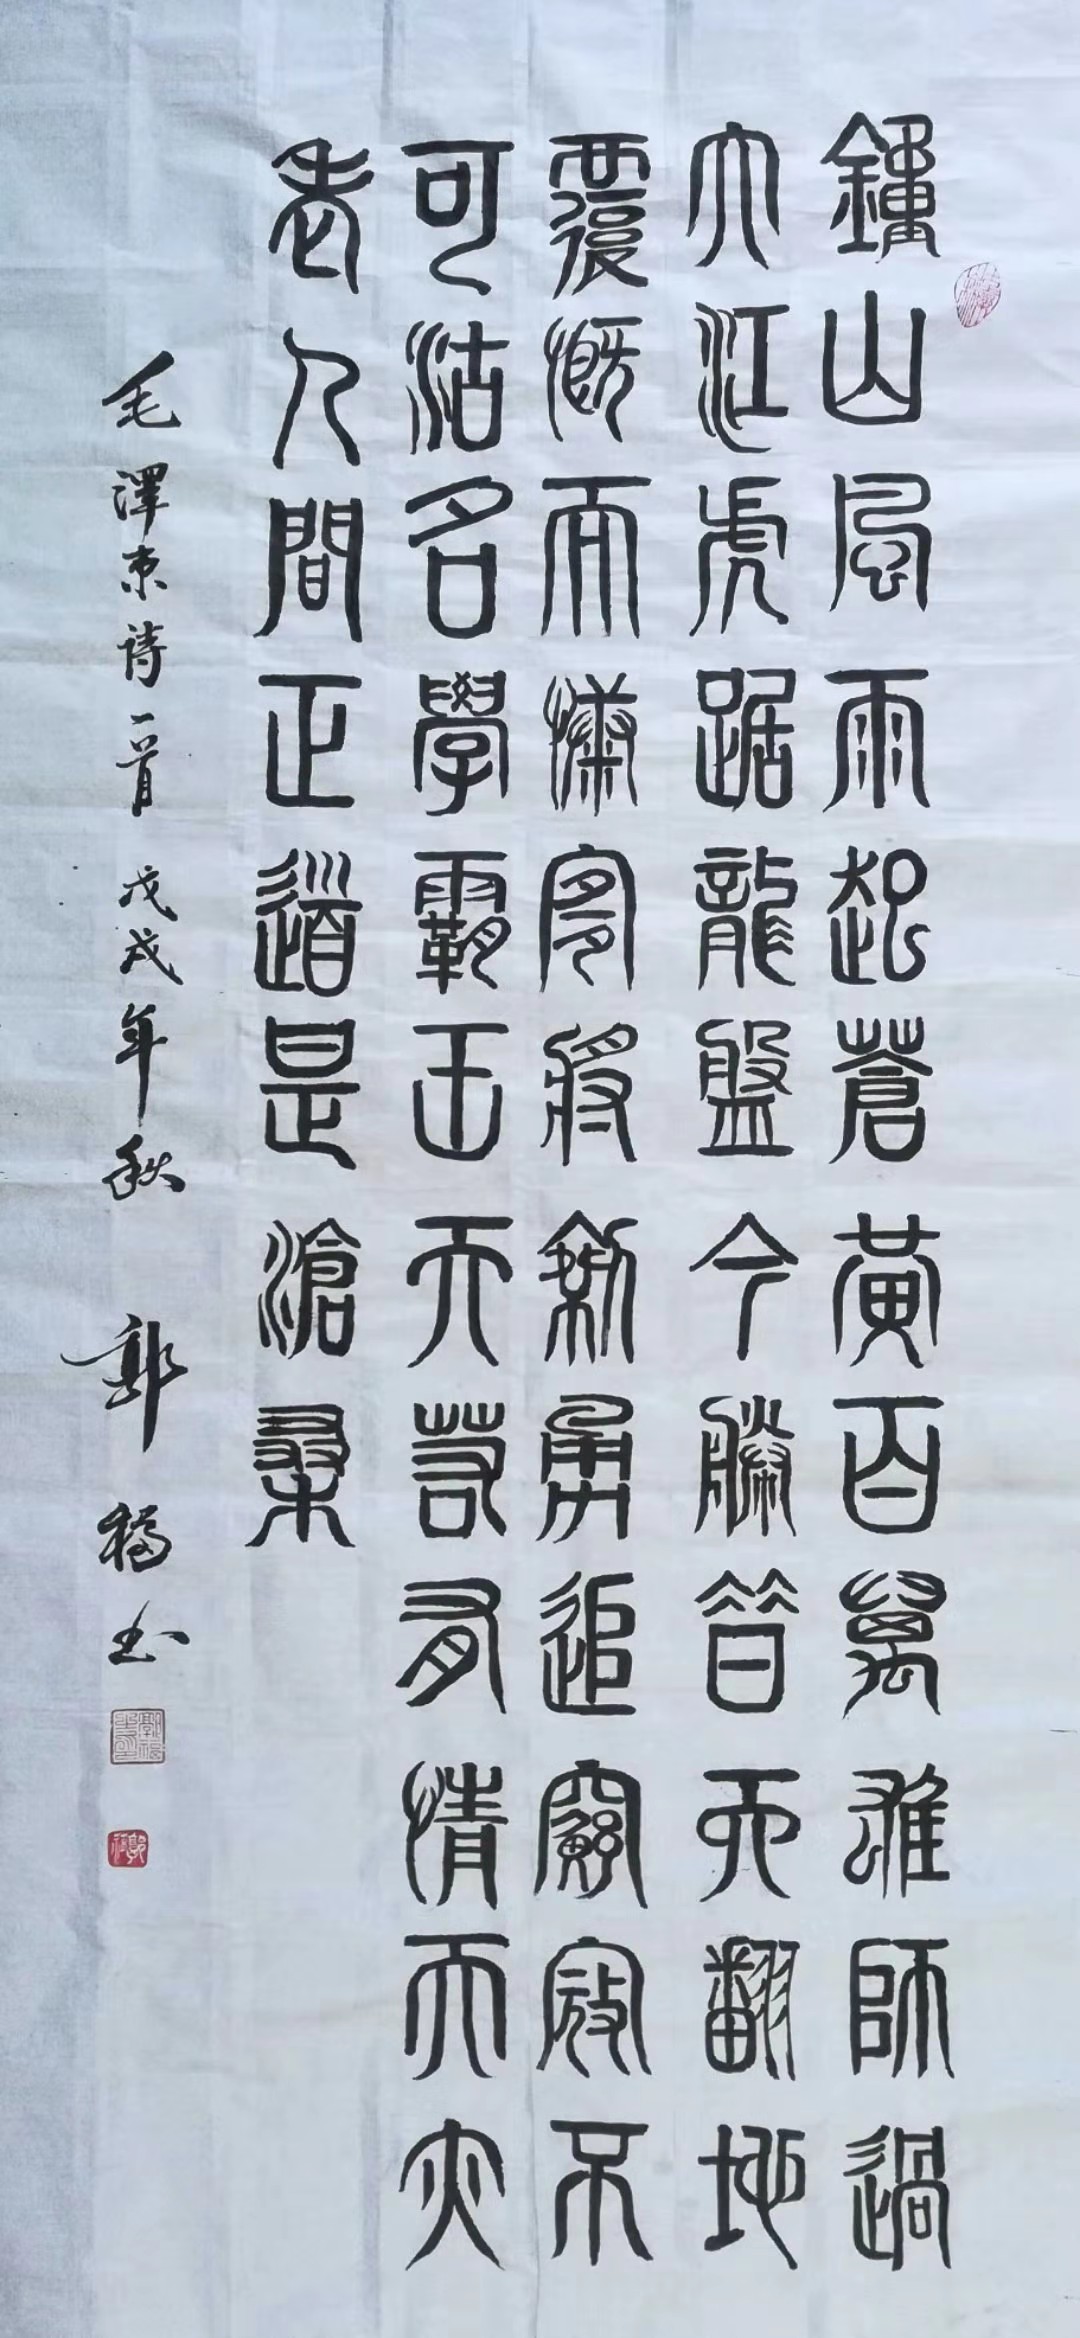 鍾山風雨起蒼黃百萬雄師過
大江虎踞龍盤今勝昔天翻地
覆慨而慷宜將剩勇追窮寇不
可沽名學霸王天若有情天亦
老人間正道是滄桑
毛澤東詩一首 戊戌年秋 郭 書